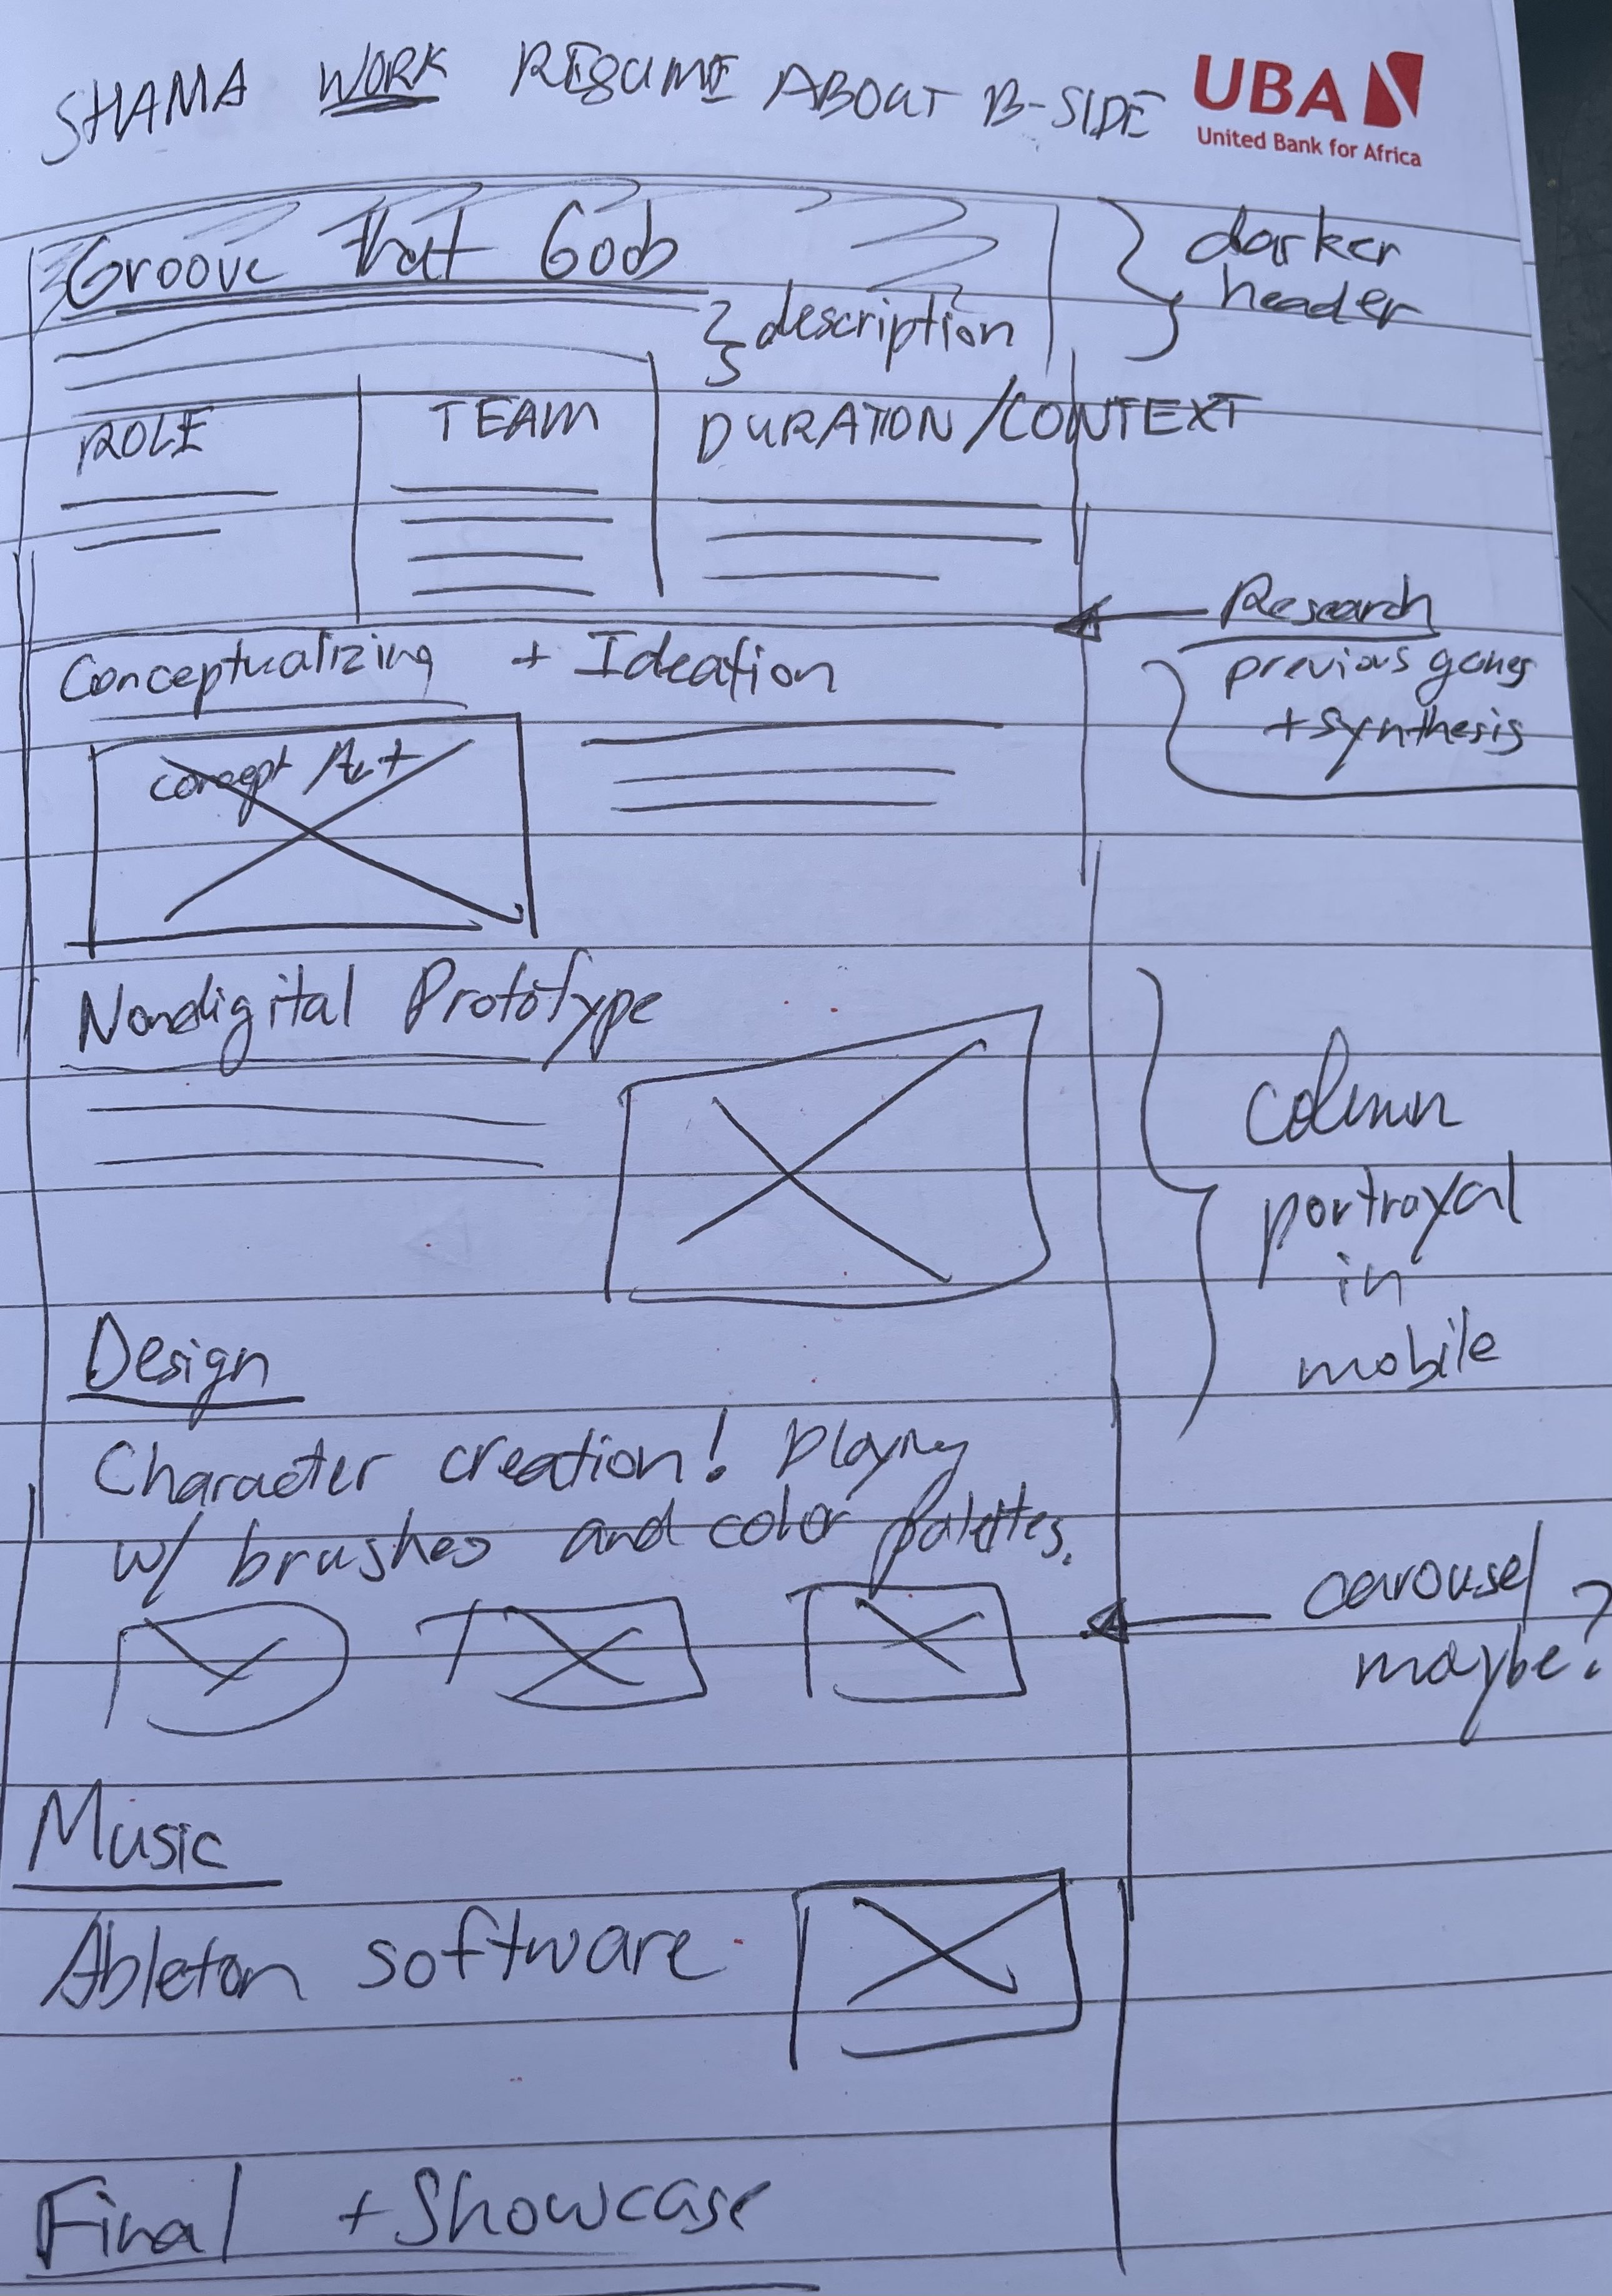 SHAMA WORK RESUME ABOUT B-SIDE
UBA
United Bank for Africa
Groove that Gods
darker
header
description
ROLE
TEAM
DURATION/CONTEXT
Research
previous games
+ synthesis
Conceptualizing + Ideation
concept Art
Nondigital Prototype
column
portrayal
in
mobile
Design
Character creation! Playing
w/ brushes and color palettes.
carousel
maybe?
Music
Ableton software
Final + Showcase